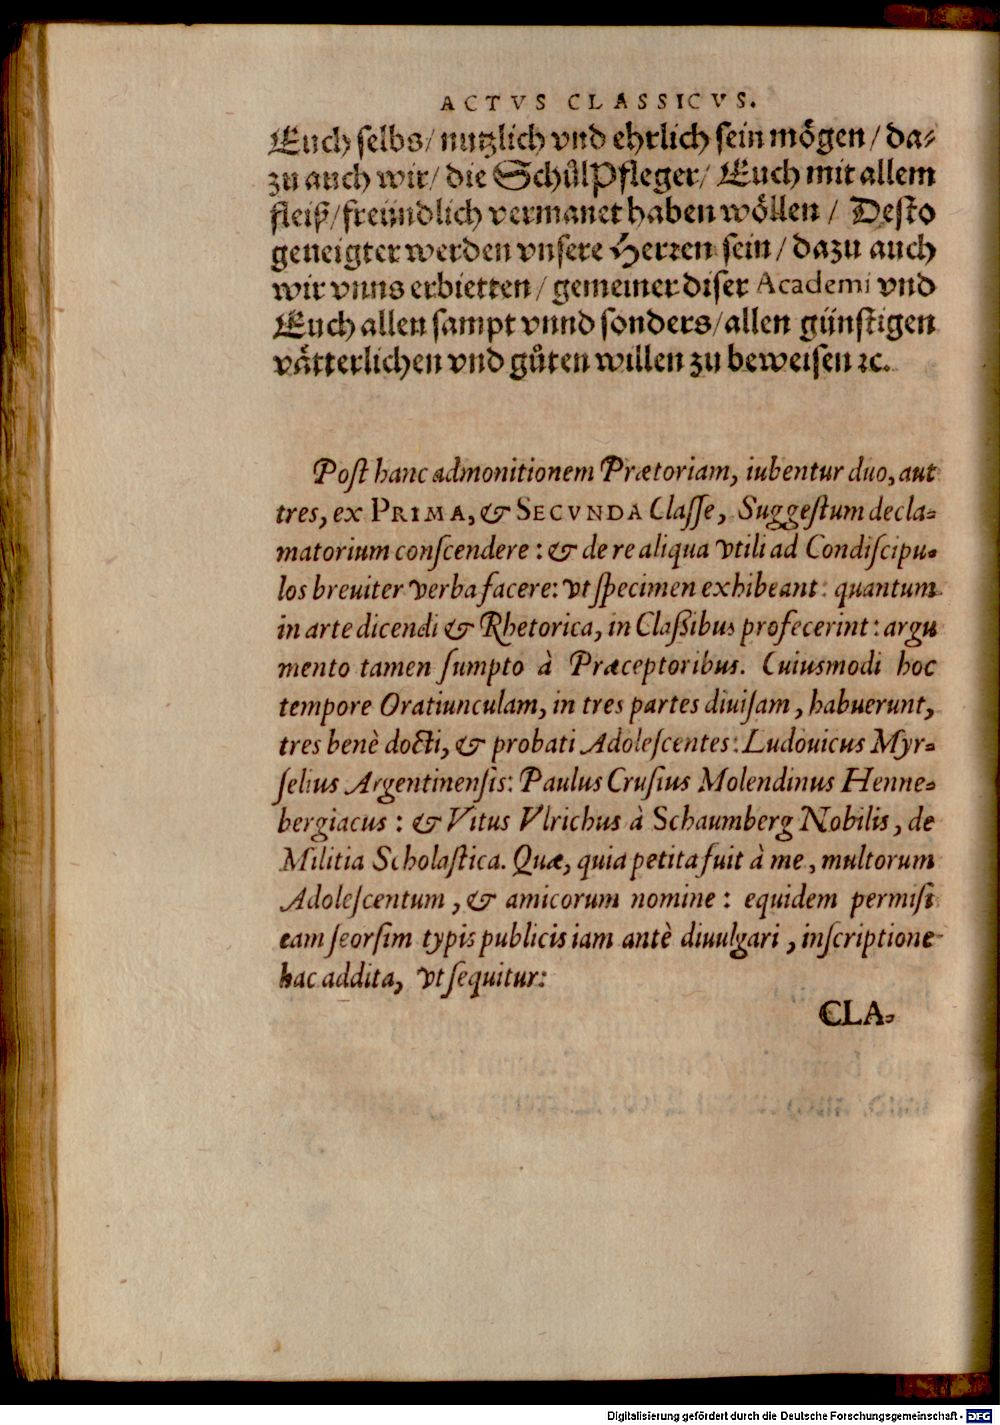 ACTVS CLASSICVS.
Euch selbs/ nutzlich vnd ehrlich sein mögen/ da⸗
zu auch wir/ die SchůlPfleger/ Euch mit allem
fleiß/ freündlich vermanet haben wöllen / Desto
geneigter werden vnsere Herren sein/ dazu auch
wir vnns erbietten/ gemeiner diser Academi vnd
Euch allen sampt vnnd sonders/ allen günstigen
vätterlichen vnd gůten willen zu beweisen ꝛc.
Post hanc admonitionem Prætoriam, iubentur duo, aut
tres, ex PRIMA, & SECVNDA Classe, Suggestum decla-
matorium conscendere : & de re aliqua vtili ad Condiscipu-
los breuiter verba facere: vt specimen exhibeant: quantum
in arte dicendi & Rhetorica, in Claßibus profecerint: argu
mento tamen sumpto à Præceptoribus. Cuiusmodi hoc
tempore Oratiunculam, in tres partes diuisam, habuerunt,
tres benè docti, & probati Adolescentes: Ludouicus Myr-
selius Argentinensis: Paulus Crusius Molendinus Henne-
bergiacus : & Vitus Vlrichus à Schaumberg Nobilis, de
Militia Scholastica. Quæ, quia petita fuit à me, multorum
Adolescentum, & amicorum nomine: equidem permisi
eam seorsim typis publicis iam antè diuulgari, inscriptione
hac addita, vt sequitur:
CLA-
Digitalisierung gefördert durch die Deutsche Forschungsgemeinschaft - DFG